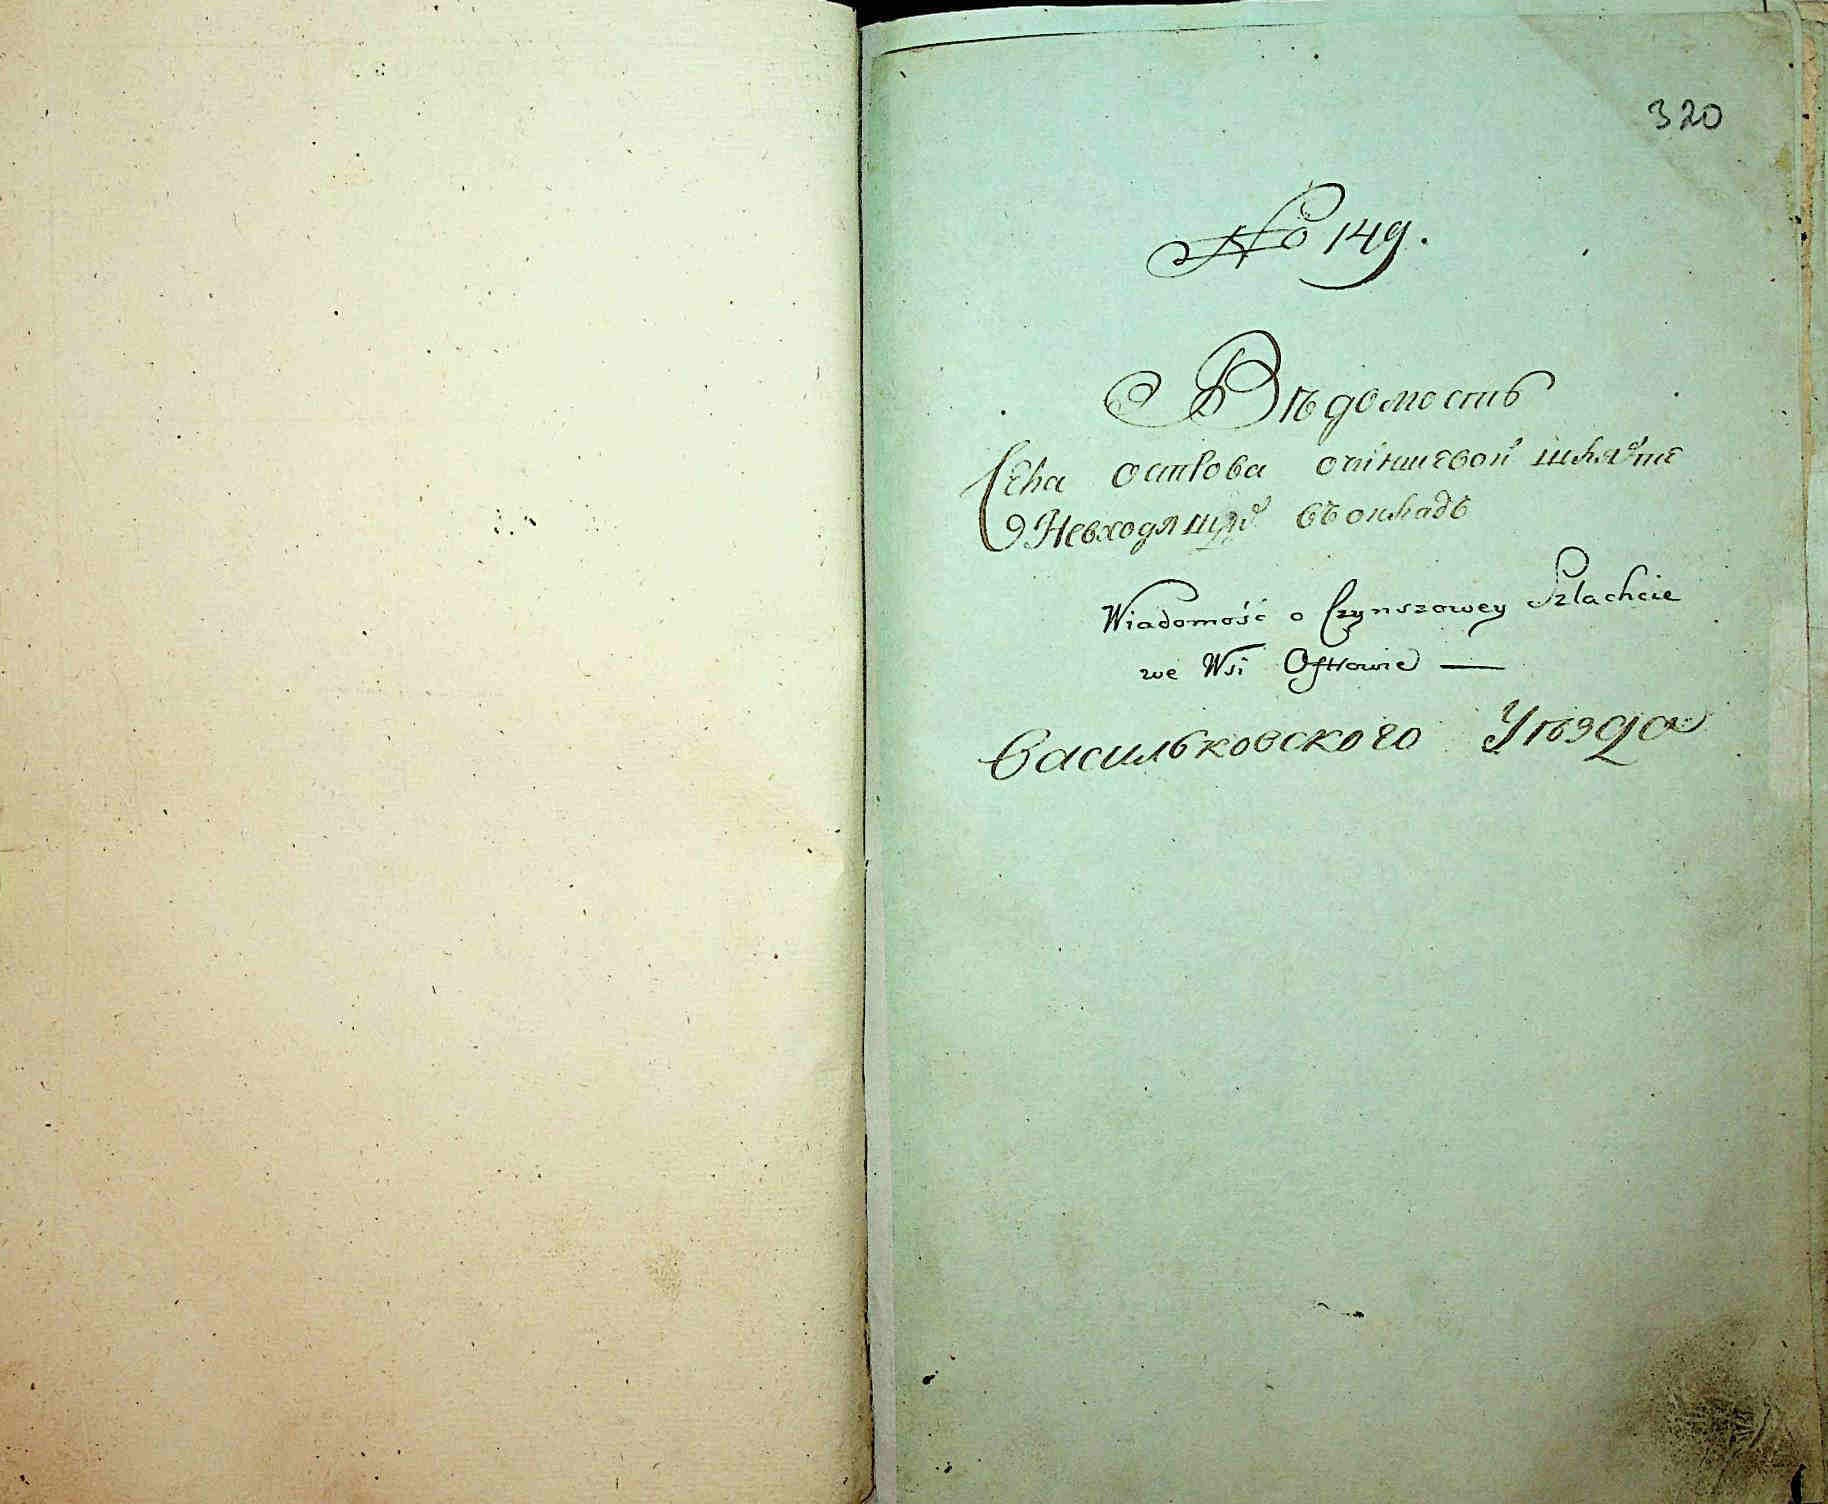 320
No 149.
Вѣдомость
Села острова очиншевой шляхте
Невходящей въ окладъ
Wiadomość o Czynszowey Szlachcie
we Wsi Ostrowie —
Васильковского Уѣзда